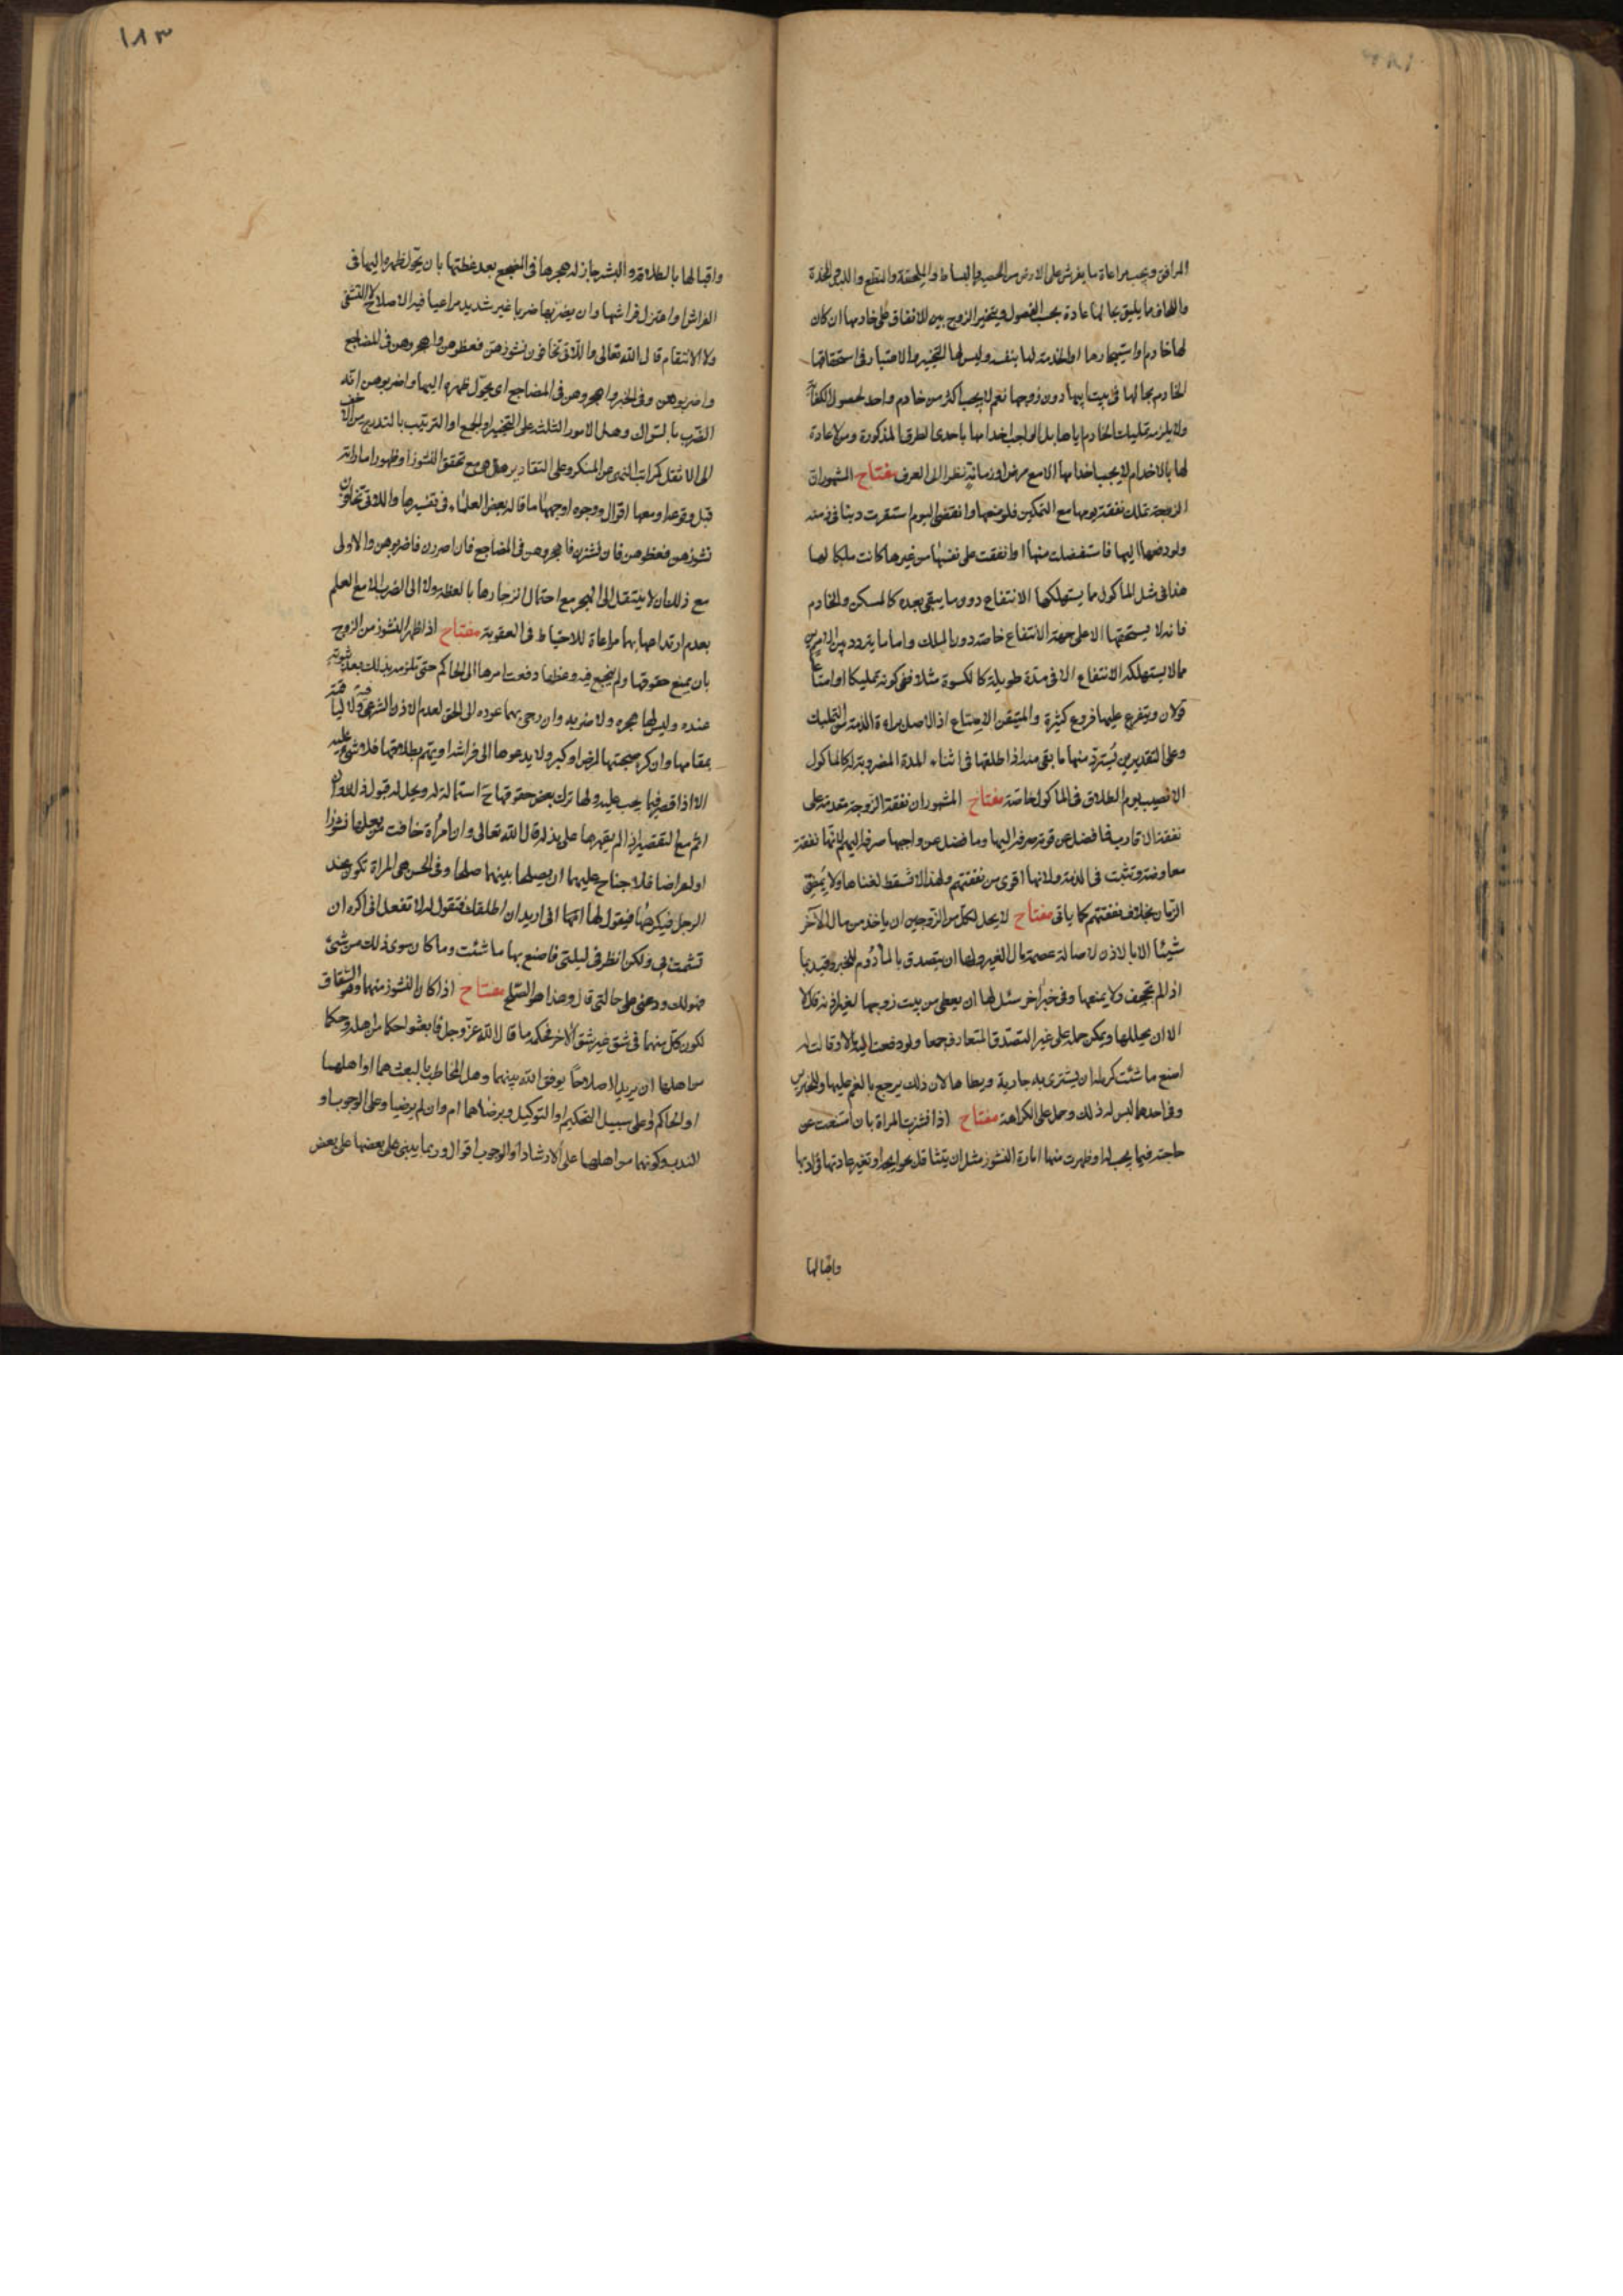 المرافق ويجب مراعاة ما يفرش على الارض من الحصير والبساط والملحفة والنطع واللبد والمخدة
واللحاف ما يليق بحالها عادة بحسب الفصول ويتخير الزوج بين الانفاق على خادمها ان كان
لها خادم او استيجارها او الخدمة لها بنفسه وليس لها التخيير والاعتبار في استحقاقها
الخادم بحالها في بيت ابيها دون زوجها نعم لا يجب اكثر من خادم واحد لحصول الكفاية
ولا يلزمه تمليك الخادم اياها بل الواجب اخدامها باحدى الطرق المذكورة ومن لا عادة
لها بالاخدام لا يجب اخدامها الا مع مرض او زمانة نظرا الى العرف مفتاح المشهور ان
الزوجة تملك نفقة يومها مع التمكين فلو منعها وانقضى اليوم استقرت دينا في ذمته
ولو دفعها اليها فاستفضلت منها او انفقت على نفسها من غيرها كانت ملكا لها
هذا في مثل الماكول مما يستهلكه الانتفاع دون ما يبقى بعده كالمسكن والخادم
فانه لا يستحقها الا على جهة الانتفاع خاصة دون الملك واما ما يتردد بين الامرين
مما لا يستهلكه الانتفاع الا في مدة طويلة كالكسوة مثلا ففي كونه تمليكا او امتاعا
قولان ويتفرع عليها فروع كثيرة والمتيقن الامتاع اذ الاصل براءة الذمة من التمليك
وعلى التقديرين يسترد منها ما بقي منه اذا طلقها في اثناء المدة المضروبة له كالماكول
الا نصيب يوم الطلاق في الماكول خاصة مفتاح المشهور ان نفقة الزوجة مقدمة على
نفقة الاقارب فما فضل عن قوته صرفه اليها وما فضل عن واجبها صرفه اليهم لانها نفقة
معاوضة وتثبت في الذمة ولانها اقوى من نفقتهم ولهذا لا تسقط لغناها ولا بمضي
الزمان بخلاف نفقتهم كما ياتي مفتاح لا يحل لكل من الزوجين ان ياخذ من مال الآخر
شيئا الا بالاذن لاصالة عصمة مال الغير ولها ان يتصدق بالمأدوم للخبر وقيد بما
اذا لم تجحف ولا يمنعها وفي خبر اخر سئل لها ان يعطي من بيت زوجها لغير اذنه قال لا
الا ان يحللها ويمكن حمله على غير التصدق المتعارف جمعا ولو دفعت اليه مالا وقالت له
اصنع ما شئت كره له ان يشترى به جارية ويطاها لان ذلك يرجع بالغم عليها وللخبرين
وفي احدهما ليس له ذلك وحمل على الكراهة مفتاح اذا نشزت المراة بان امتنعت عن
حاجته فيما يجب له او ظهرت منها امارة النشوز مثل ان يتثاقل بحوايجه او تغير عادتها في ادبها
واقبالها
١٨٣
واقبالها بالطلاقة والبشر جاز له هجرها في المضجع بعد عظتها بان يحول ظهره اليها في
الفراش او اعتزل فراشها وان يضربها ضربا غير شديد مراعيا فيه الاصلاح لا التشفي
ولا الانتقام قال الله تعالى واللاتي تخافون نشوزهن فعظوهن واهجروهن في المضاجع
واضربوهن وفي الخبر واهجروهن في المضاجع اي يحول ظهره اليها واضربوهن انه
الضرب بالسواك وهل الامور الثلثة على التخيير او الجمع او الترتيب بالتدريج من الاخف
الى الاثقل كمراتب النهي عن المنكر وعلى التقادير هل هي مع تحقق النشوز او ظهور اماراته
قبل وقوعه او معها اقوال ووجوه اوجهها ما قاله بعض العلماء في تفسيرها واللاتي تخافون
نشوزهن فعظوهن فان نشزن فاهجروهن في المضاجع فان اصررن فاضربوهن والاولى
مع ذلك ان لا ينتقل الى الهجر مع احتمال انزجارها بالعظة ولا الى الضرب الا مع العلم
بعدم ارتداعها بهما مراعاة للاحتياط في العقوبة مفتاح اذا ظهر النشوز من الزوج
بان يمنع حقوقها ولم ينجع فيه وعظها دفعت امرها الى الحاكم حتى يلزمه بذلك بعد ثبوته
عنده وليس لها هجره ولا ضربه وان رجى بهما عوده الى الحق لعدم الاذن الشرعي ولا لياقته
بمقامها وان كره صحبتها لمرض او كبر ولا يدعوها الى فراشه او يهم بطلاقها فلا شيء عليه
الا اذا قصر فيما يجب عليه ولها ترك بعض حقوقها ح استمالة له ويحل له قبول ذلك وان
اثم مع التقصير اذا لم يقهرها على بذله قال الله تعالى وان امرأة خافت من بعلها نشوزا
او اعراضا فلا جناح عليهما ان يصلحا بينهما صلحا وفي الحسن هي المراة تكون عند
الرجل فيكرهها فيقول لها انما اني اريد ان اطلقك فتقول له لا تفعل اني اكره ان
تشمت بي ولكن انظر في ليلتي فاصنع بها ما شئت وما كان سوى ذلك من شيئ
فهو لك ودعني على حالتي قال وهذا هو الصلح مفتاح اذا كان النشوز منهما وهو الشقاق
لكون كل منهما في شق غير شق الاخر فحكمه ما قال الله عز وجل فابعثوا حكما من اهله وحكما
من اهلها ان يريدا اصلاحا يوفق الله بينهما وهل المخاطب بالبعث هما او اهلهما
او الحاكم وعلى سبيل التحكيم او التوكيل وبرضاهما ام وان لم يرضيا وعلى الوجوب او
الندب وكونهما من اهلهما على الارشاد او الوجوب اقوال وربما يبنى على بعضها على بعض